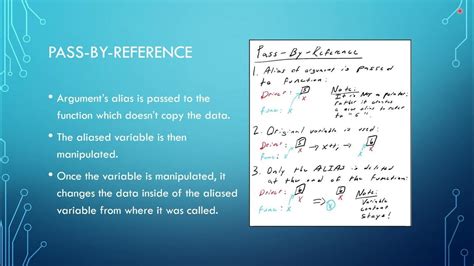 PASS-BY-REFERENCE
• Argument's alias is passed to the
function which doesn't copy the data.
• The aliased variable is then
manipulated.
• Once the variable is manipulated, it
changes the data inside of the aliased
variable from where it was called.
Pass-By-Reference
1. Alias of argument is passed
to function:
Driver: 5
x
func: x
Note:
It is Not a pointer;
rather it creates
a new alias to refer
to "5".
2. Original variable is used:
5 → x++; → 6
x x
3. Only the ALIAS is deleted
at the end of the function:
Driver: 6
x
func: x
Note:
Variable
content
stays!